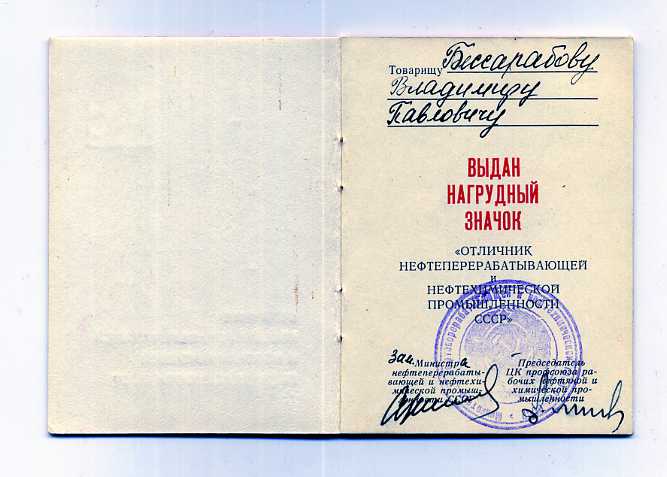 Товарищу Бессарабову
Владимиру
Павловичу
ВЫДАН
НАГРУДНЫЙ
ЗНАЧОК
«ОТЛИЧНИК
НЕФТЕПЕРЕРАБАТЫВАЮЩЕЙ
и
НЕФТЕХИМИЧЕСКОЙ
ПРОМЫШЛЕННОСТИ
СССР»
Зам. Министра
нефтеперерабаты-
вающей и нефтехи-
мической промыш-
ленности СССР
Председатель
ЦК профсоюза ра-
бочих нефтяной и
химической про-
мышленности